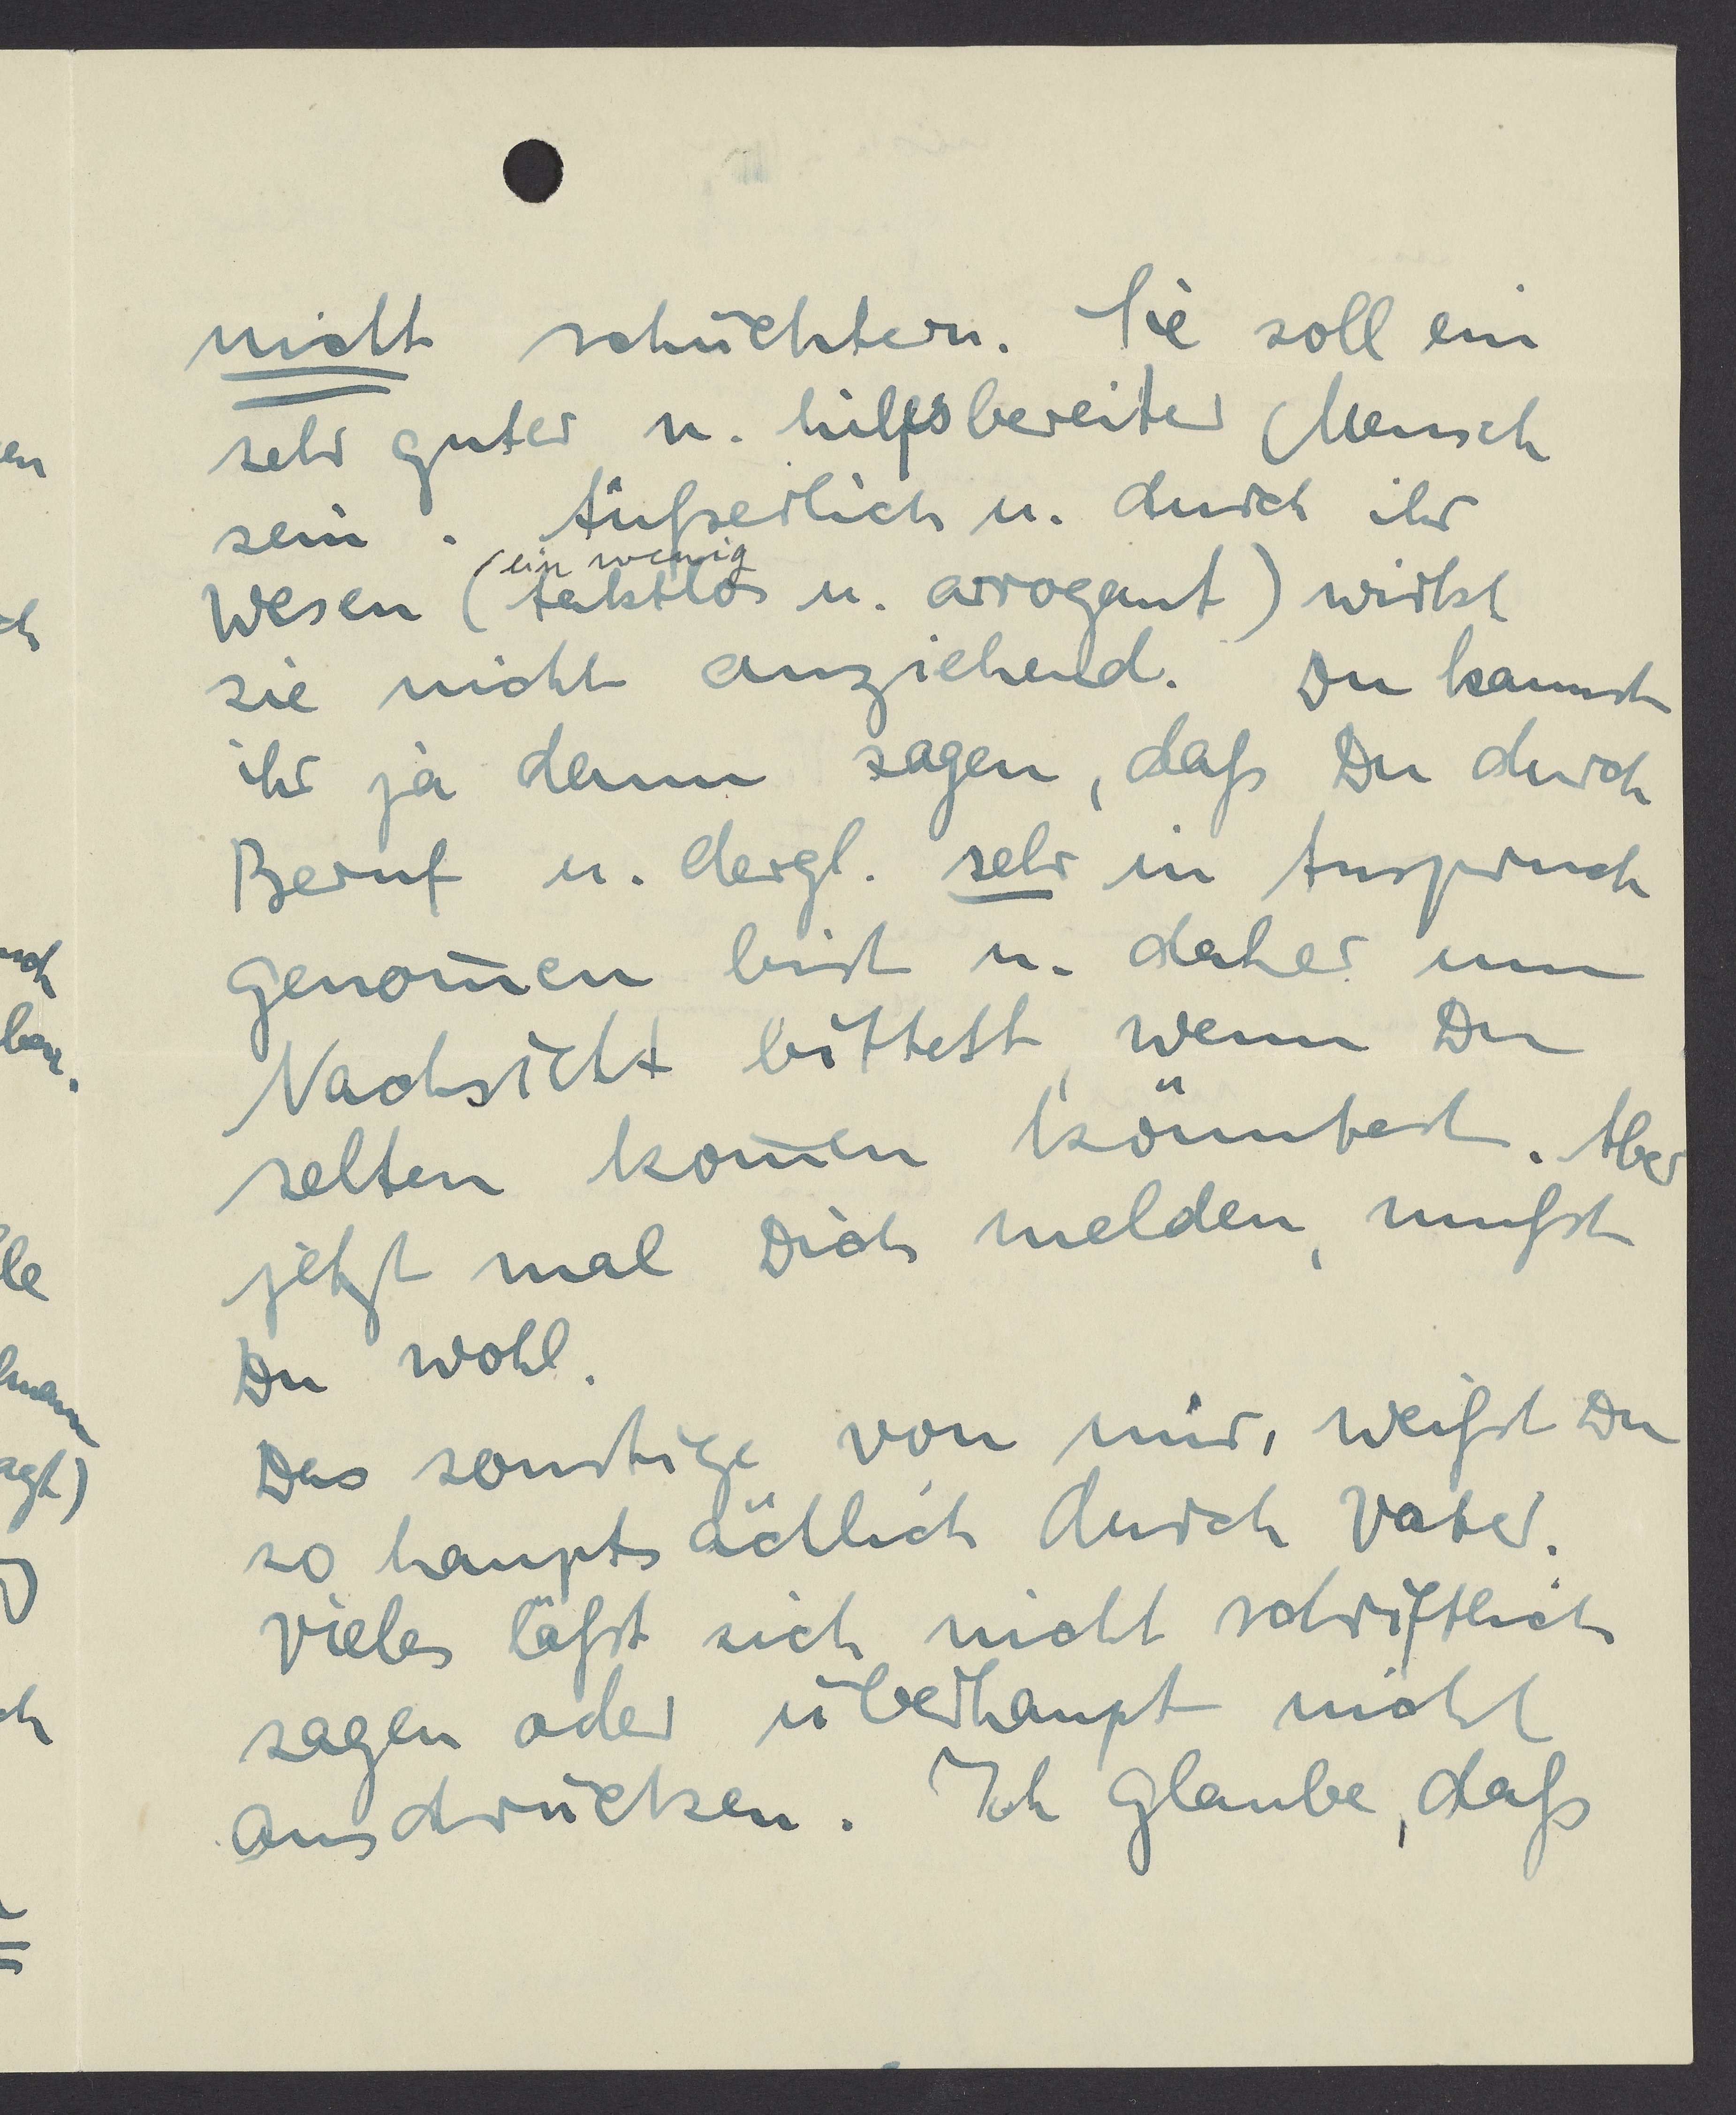 nicht schüchtern. Sie soll ein
sehr guter u. hilfsbereiter Mensch
sein. Äußerlich u. durch ihr
(ein wenig
Wesen (taktlos u. arrogant) wirkt
sie nicht anziehend. Du kannst
ihr ja dann sagen, daß Du durch
Beruf u. dergl. sehr in Anspruch
genom̅en bist u. daher um
Nachsicht bittest, wenn Du
selten kom̅en könntest. Aber
jetzt mal Dich melden, mußt
Du wohl.
Das sonstige von mir, weißt Du
so hauptsächlich durch Vater.
Vieles läßt sich nicht schriftlich
sagen oder überhaupt nicht
ausdrücken. Ich glaube, daß